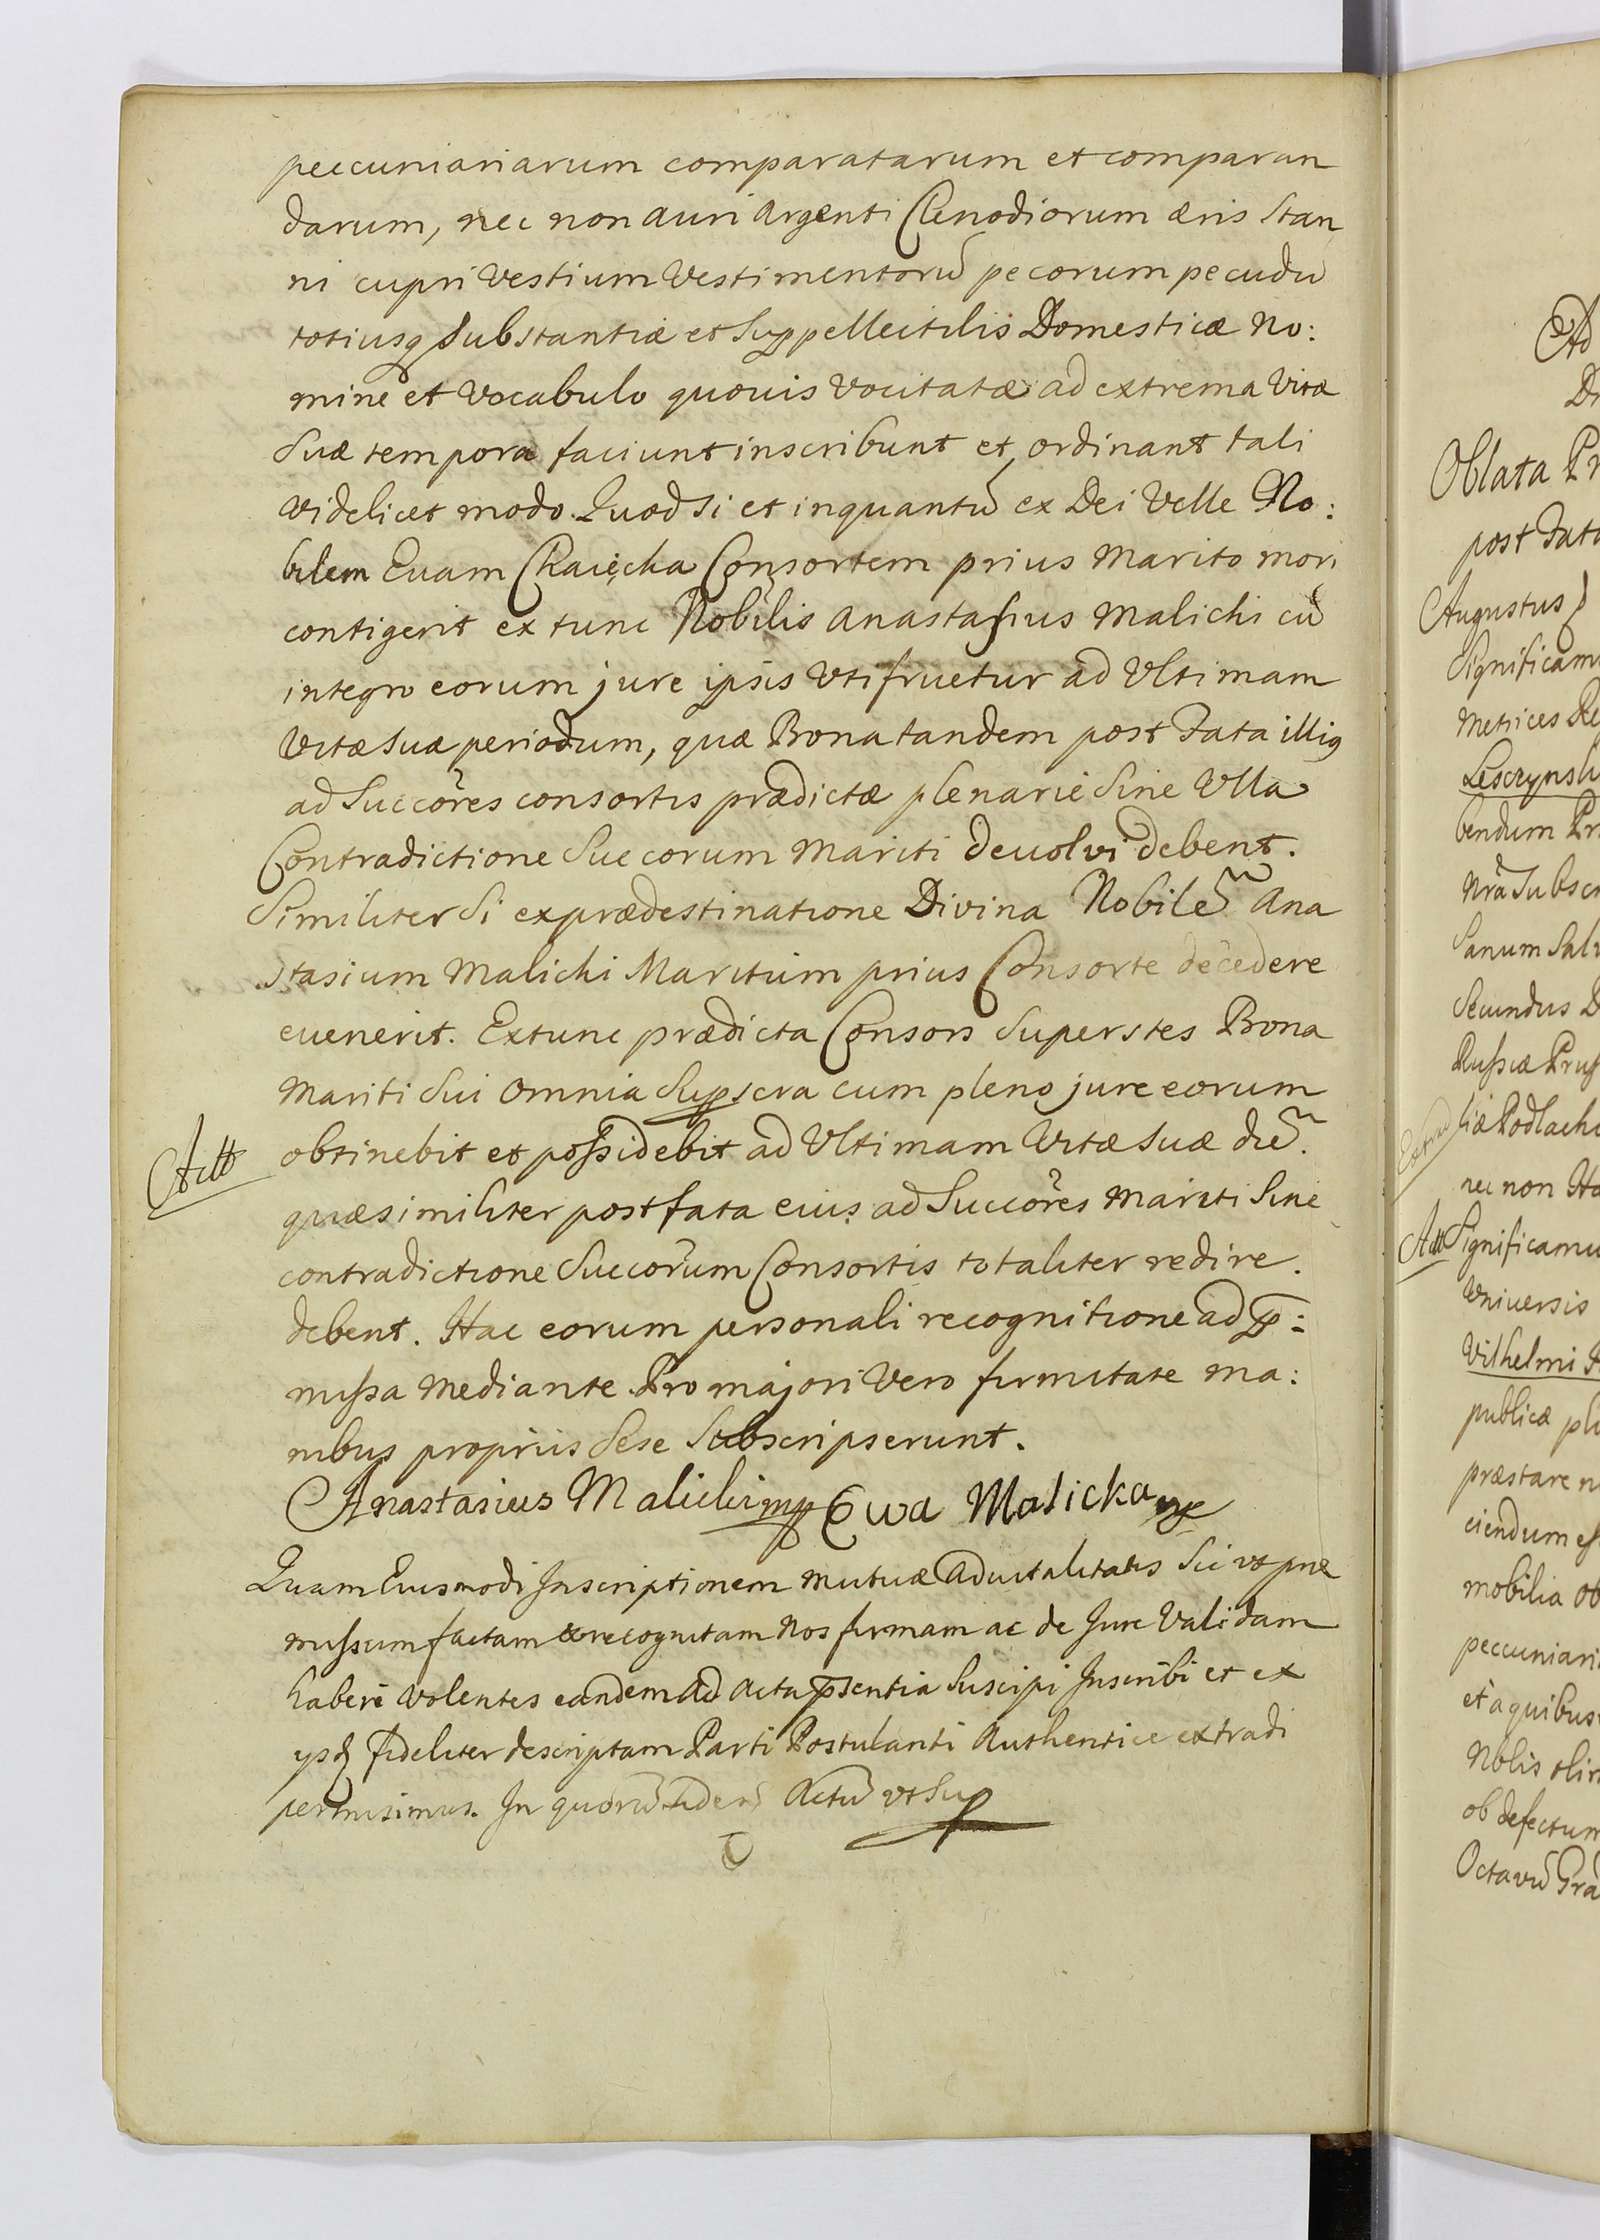 peccuniariarum comparatarum et comparan
darum, nec non auri argenti Clenodiorum æris Stan
ni cupri Vestium Vestimentorũ pecorum pecudũ
totiusq substantiæ et Suppellectilis Domesticæ No:
mine et vocabulo quovis vocitatæ ad extrema Vitæ
Suæ tempora faciunt inscribunt et ordinant tali
videlicet modo. Quod Si et inquantũ ex Dei Velle No:
bilem Evam Consortem prius Marito mori
contigerit ex tunc Nobilis Anastasius Malicki cũ
integro eorum jure ipsis Utifruetur ad Ultimam
Vitæ Suæ periodum, quæ Bona tandem post Fata illiq
ad Succõres consortis prædictæ plenarie Sine Ulla
Contradictione Succorum Mariti devolvi debent.
Similiter Si ex prædestinatione Divina Nobilẽ Ana
stasium Malicki Maritum prius Consorte decedere
evenerit. Extunc prædicta Consors Superstes Bona
Mariti Sui Omnia Suppscra cum pleno jure eorum
Actt
obtinebit et possidebit ad Ultimam Vitæ Suæ diẽ.
quæ similiter post fata eius ad Succõres Mariti Sine
contradictione Succõrum Consortis totaliter redire.
debent. Hac eorum personali recognitione ad p̃:
missa mediante. Pro majori Vero firmitate ma:
nibus propriis Sese Subscripserunt.
Anastasius Malicki mp Ewa Malicka mp
Quam Eiusmodi Inscriptionem mutuæ Advitalitatis Sic vt præ
missum factam & recognitam Nos firmam ac de Jure Validam
habere Volentes eandem Ad Acta p̃sentia Suscipi Inscribi et ex
ysd fideliter descriptam Parti Postulanti Authentice extradi
permisimus. In quorũ fidem Actũ vt Sup
Ad
Oblata Pr
post Fata
Augustus
Significam
Metrices Re
bendum Pr
Nrã Subscr
Sanum Salv
Secundus D
Russiæ Prus
liæ Podlachi
nec non
Actt
Significamu
Universis
Vilhelmi
publicæ
præstare n
ciendum es
mobilia ob
peccuniari
et a quibus
Nblis olim
ob defectum
Octavũ Gra